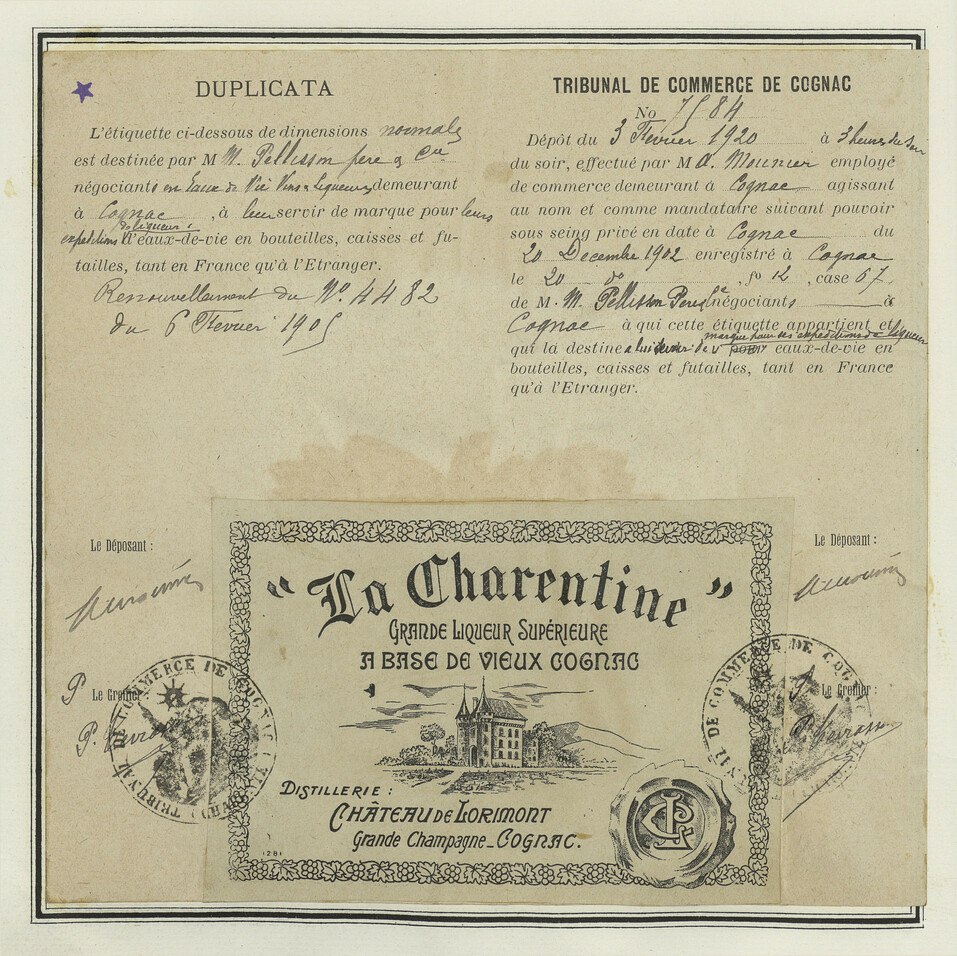 DUPLICATA
L'étiquette ci-dessous de dimensions normales
est destinée par M M. Pellisson père & Cie
négociants en Eaux de Vie Vins & Liqueurs demeurant
à Cognac, à leur servir de marque pour leurs
de liqueurs &
expéditions d'eaux-de-vie en bouteilles, caisses et fu-
tailles, tant en France qu'à l'Etranger.
Renouvellement du No. 4482
du 6 Février 1905
TRIBUNAL DE COMMERCE DE COGNAC
No 7584
Dépôt du 3 Février 1920 à 3 heures du soir
du soir, effectué par M A. Mounier employé
de commerce demeurant à Cognac agissant
au nom et comme mandataire suivant pouvoir
sous seing privé en date à Cognac du
20 Decembre 1902 enregistré à Cognac
le 20 do, fo 12, case 67,
de M. M. Pellisson Père & Cie négociants à
Cognac à qui cette étiquette appartient et
marque pour ses expéditions de liqueurs
qui la destine à lui servir de eaux-de-vie en
bouteilles, caisses et futailles, tant en France
qu'à l'Etranger.
Le Déposant :
Le Déposant :
P. Le Greffier :
P. Le Greffier :
TRIBUNAL DE COMMERCE DE COGNAC
TRIBUNAL DE COMMERCE DE COGNAC
"La Charentine"
GRANDE LIQUEUR SUPÉRIEURE
A BASE DE VIEUX COGNAC
DISTILLERIE :
CHÂTEAU DE LORIMONT
Grande Champagne_COGNAC.
1281